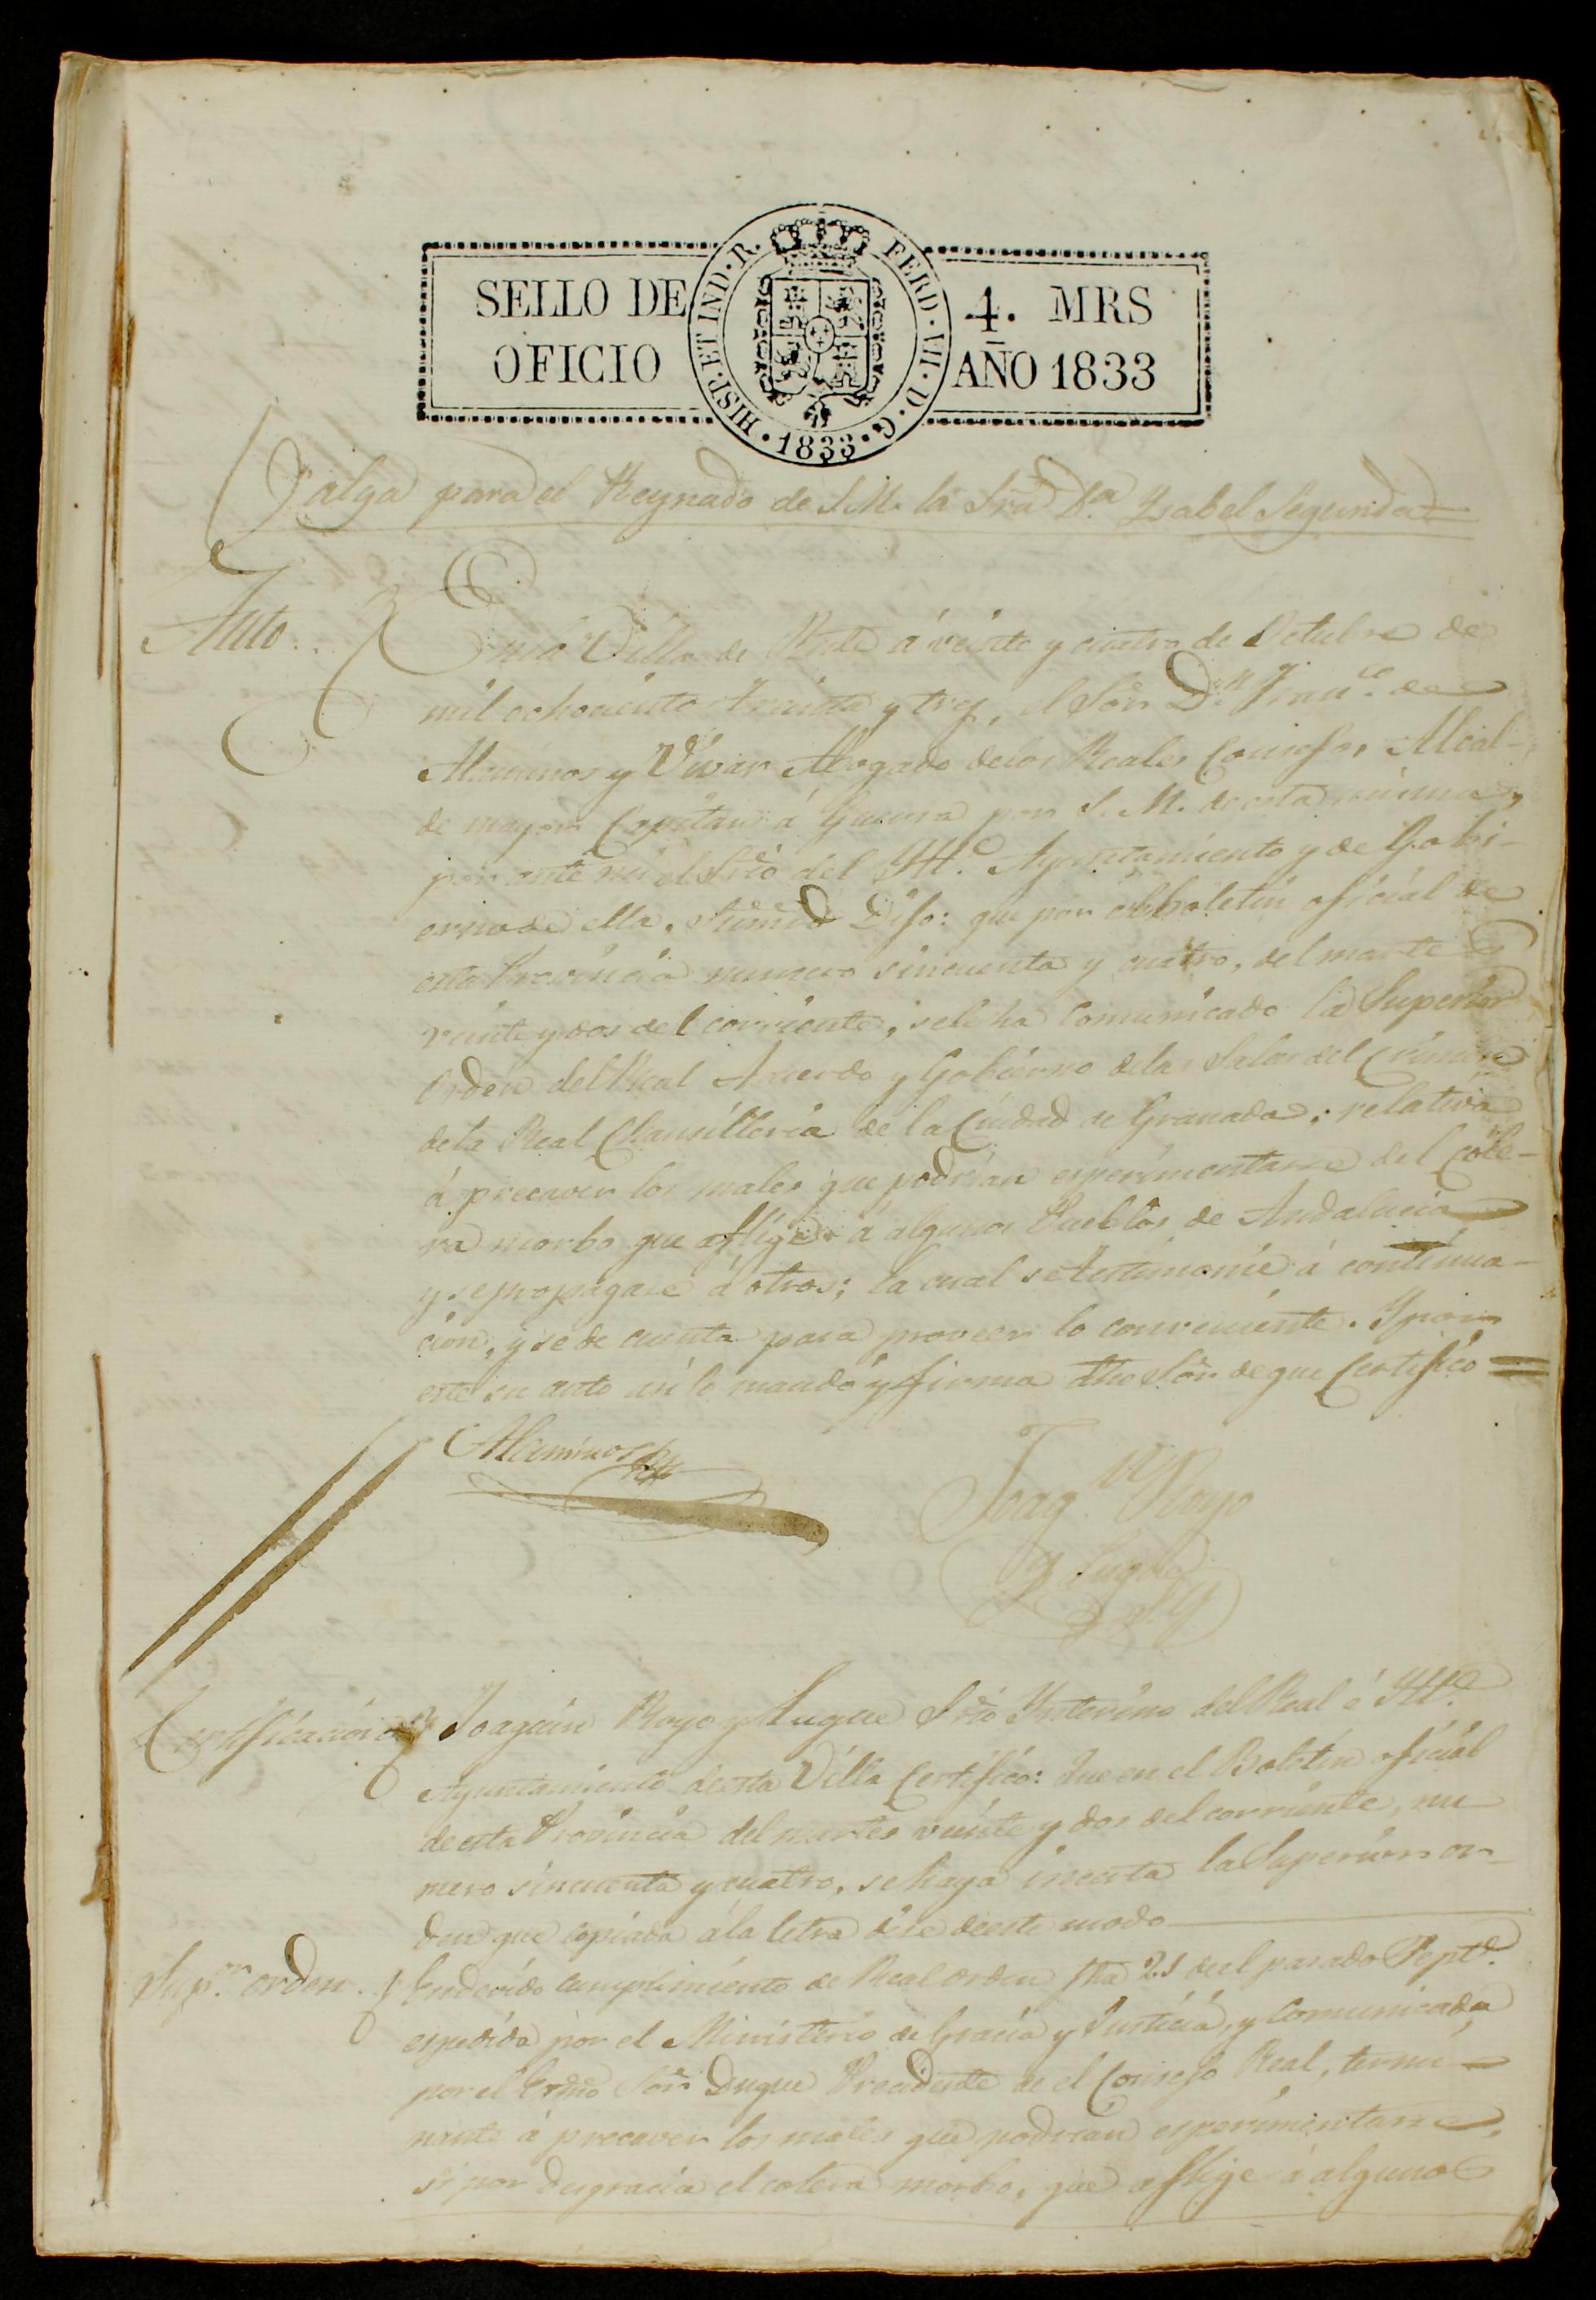 SELLO DE OFICIO
4. MRS
AÑO 1833
HISP. ET IND. R. FERD. VII. D. G. 1833.
Valga para el Reynado de S.M. la Srã Dª Ysabel Segunda
Auto..
En la Villa de Rute á veinte y cuatro de Octubre de
mil ochocientos treinta y tres, el Sõr Dn Franco de
Alcaminos y Vivar Abogado delos Reales Consejos, Alcal-
de mayor Capitan á Guerra por S. M. de esta misma,
por ante mi el Srio del Ille Ayuntamiento y de Gobi-
erno de ella, Dijo: que por el boletin oficial de
esta Provincia numero sincuenta y cuatro, del martes
veinte y dos del corriente, sele ha comunicado la Superior
Orden del Real Acuerdo y Gobierno delas Salas del Crimen
dela Real Chansilleria de la Ciudad de Granada; relativa
á precaver los males que podrian esperimentarse del Cole-
ra morbo que aflige á algunos Pueblos de Andalucia
y se propagase á otros; la cual se testimonie á continua-
cion, y se de cuenta para proveer lo conveniente. Y por
este su auto asi lo mandó y firma dho Sõr de que Certifico
Joaqn Royo
y Luque
Certificacion
Joaquin Royo y Luque Srio Ynterino del Real é Ille
Ayuntamiento de esta Villa Certifico: Que en el Boletin oficial
de esta Provincia del martes veinte y dos del corriente, nu
mero sincuenta y cuatro, se haya incerta la Superior or-
den que copiada á la letra dise de este modo
Supor orden.
En devido cumplimiento de Real orden fha 21 del pasado Septe
espedida por el Ministerio de Gracia y Justicia, y comunicada
por el Exmo Sõr Duque Precidente de el Consejo Real, termi-
nante á precaver los males que podrian esperimentarse,
si por desgracia el colera morbo, que aflige á algunos